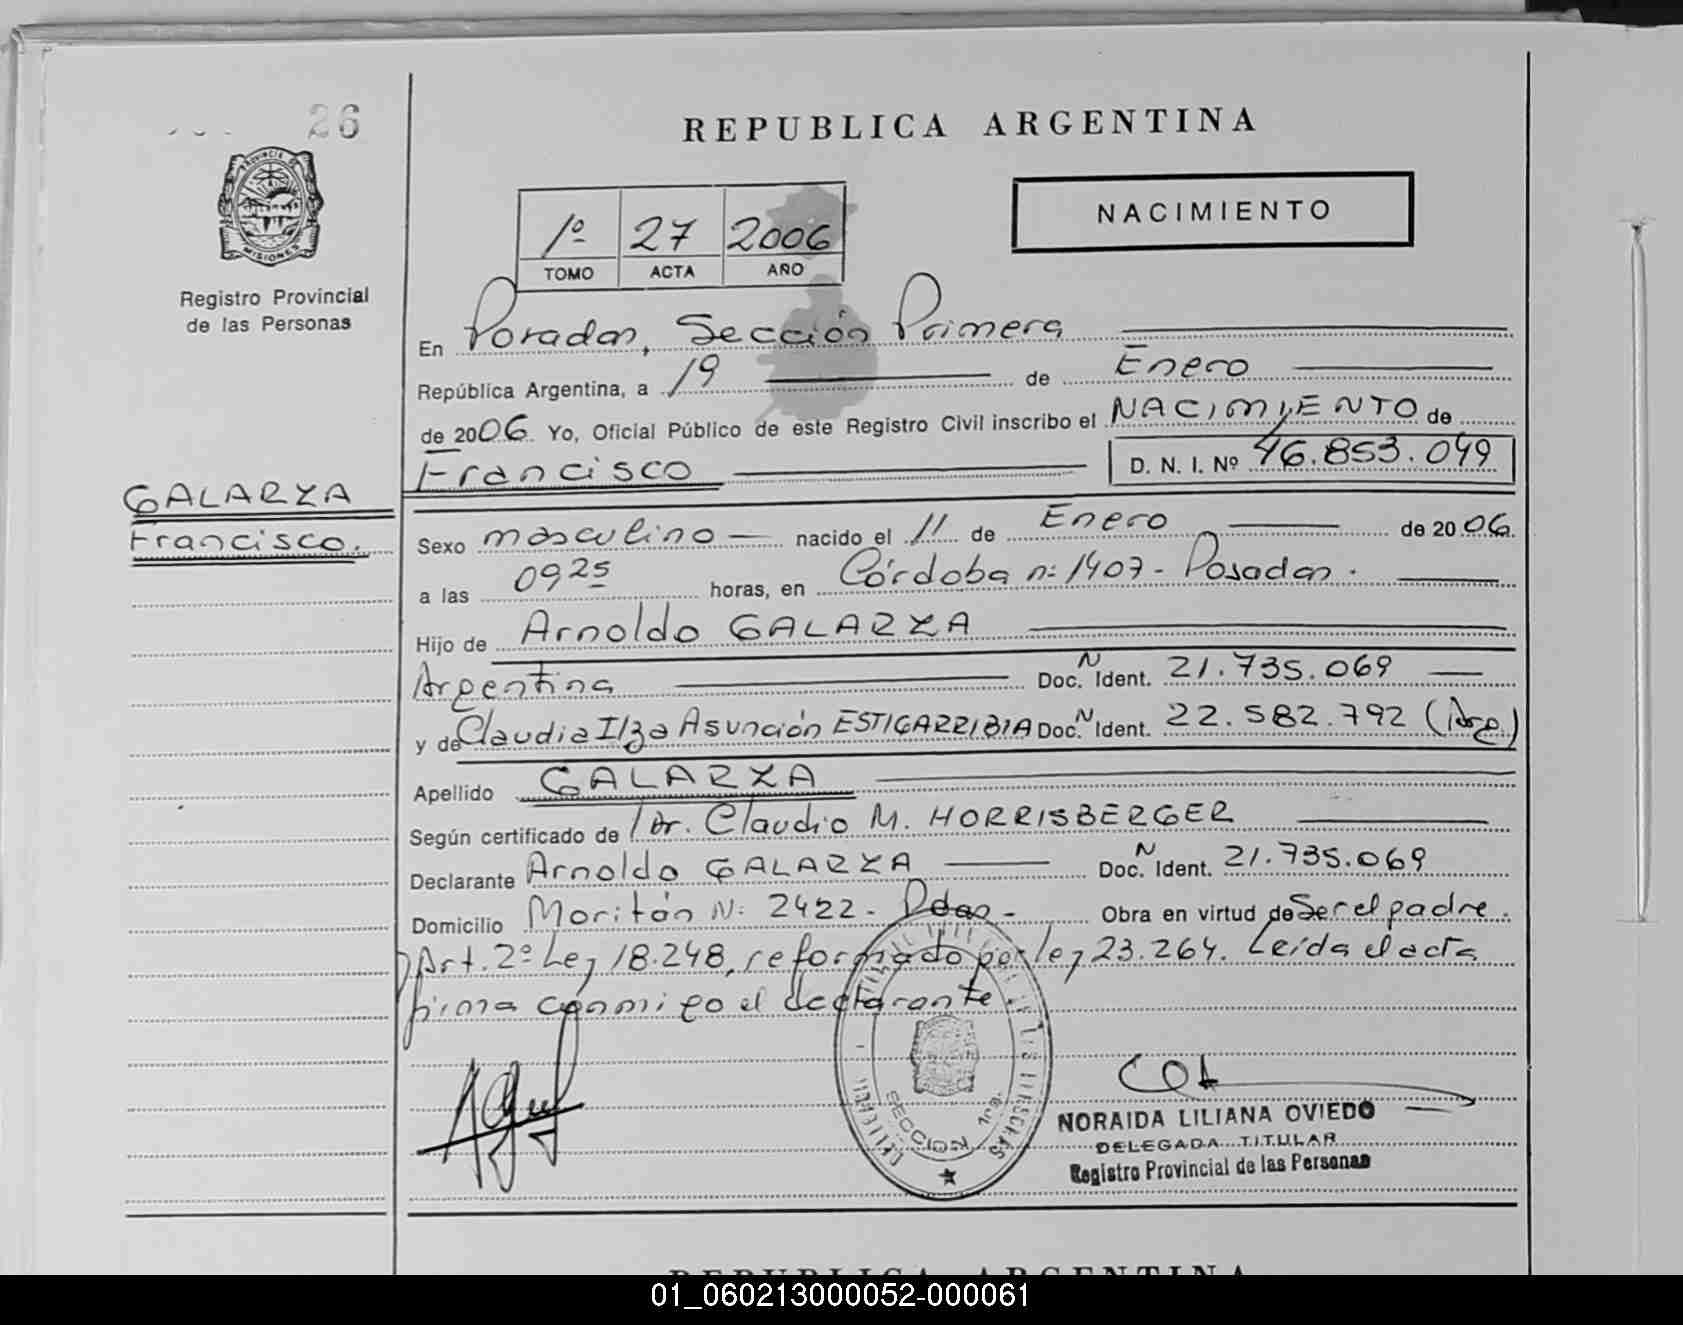 26
REPUBLICA ARGENTINA
PROVINCIA DE
MISIONES
Registro Provincial
de las Personas
1º 27 2006
TOMO ACTA AÑO
NACIMIENTO
En Posadas, Sección Primera
República Argentina, a 19 de Enero
de 2006. Yo, Oficial Público de este Registro Civil inscribo el NACIMIENTO de
Francisco D. N. I. Nº 46.853.049
GALARZA
Francisco.
Sexo masculino nacido el 11 de Enero de 2006.
a las 0925 horas, en Córdoba nº 1407 - Posadas.
Hijo de Arnoldo GALARZA
Argentina Doc. N Ident. 21.735.069
y de Claudia Ilza Asunción ESTIGARRIBIA Doc. N Ident. 22.582.792 (Arg.)
Apellido GALARZA
Según certificado de Dr. Claudio M. HORRISBERGER
Declarante Arnoldo GALARZA Doc. N Ident. 21.735.069
Domicilio Moritán Nº 2422 - Pdas - Obra en virtud de Ser el padre.
Art. 2º Ley 18.248, reformado por ley 23.264. Leída el acta
firma conmigo el declarante.
SECCION 1ra.
NORAIDA LILIANA OVIEDO
DELEGADA TITULAR
Registro Provincial de las Personas
REPUBLICA ARGENTINA
01_060213000052-000061